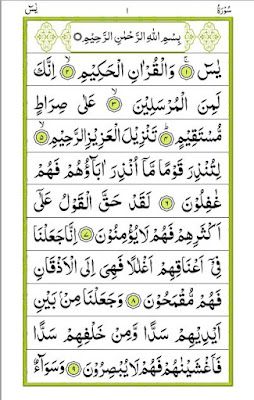 سُورَةُ ١ يٰسٓ
بِسْمِ اللّٰهِ الرَّحْمٰنِ الرَّحِيْمِ ۝
يٰسٓ ۝١ وَالْقُرْاٰنِ الْحَكِيْمِ ۝٢ اِنَّكَ
لَمِنَ الْمُرْسَلِيْنَ ۝٣ عَلٰى صِرَاطٍ
مُّسْتَقِيْمٍ ۝٤ تَنْزِيْلَ الْعَزِيْزِ الرَّحِيْمِ ۝٥
لِتُنْذِرَ قَوْمًا مَّاۤ اُنْذِرَ اٰبَآؤُهُمْ فَهُمْ
غٰفِلُوْنَ ۝٦ لَقَدْ حَقَّ الْقَوْلُ عَلٰٓى
اَكْثَرِهِمْ فَهُمْ لَا يُؤْمِنُوْنَ ۝٧ اِنَّا جَعَلْنَا
فِيْٓ اَعْنَاقِهِمْ اَغْلٰلًا فَهِيَ اِلَى الْاَذْقَانِ
فَهُمْ مُّقْمَحُوْنَ ۝٨ وَجَعَلْنَا مِنْۢ بَيْنِ
اَيْدِيْهِمْ سَدًّا وَّمِنْ خَلْفِهِمْ سَدًّا
فَاَغْشَيْنٰهُمْ فَهُمْ لَا يُبْصِرُوْنَ ۝٩ وَسَوَآءٌ